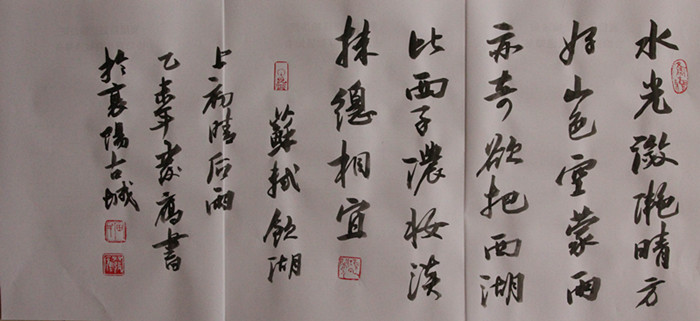 水光潋滟晴方
好山色空蒙雨
亦奇欲把西湖
比西子浓妆淡
抹总相宜
苏轼饮湖
上初晴后雨
乙未年 书
于襄阳古城